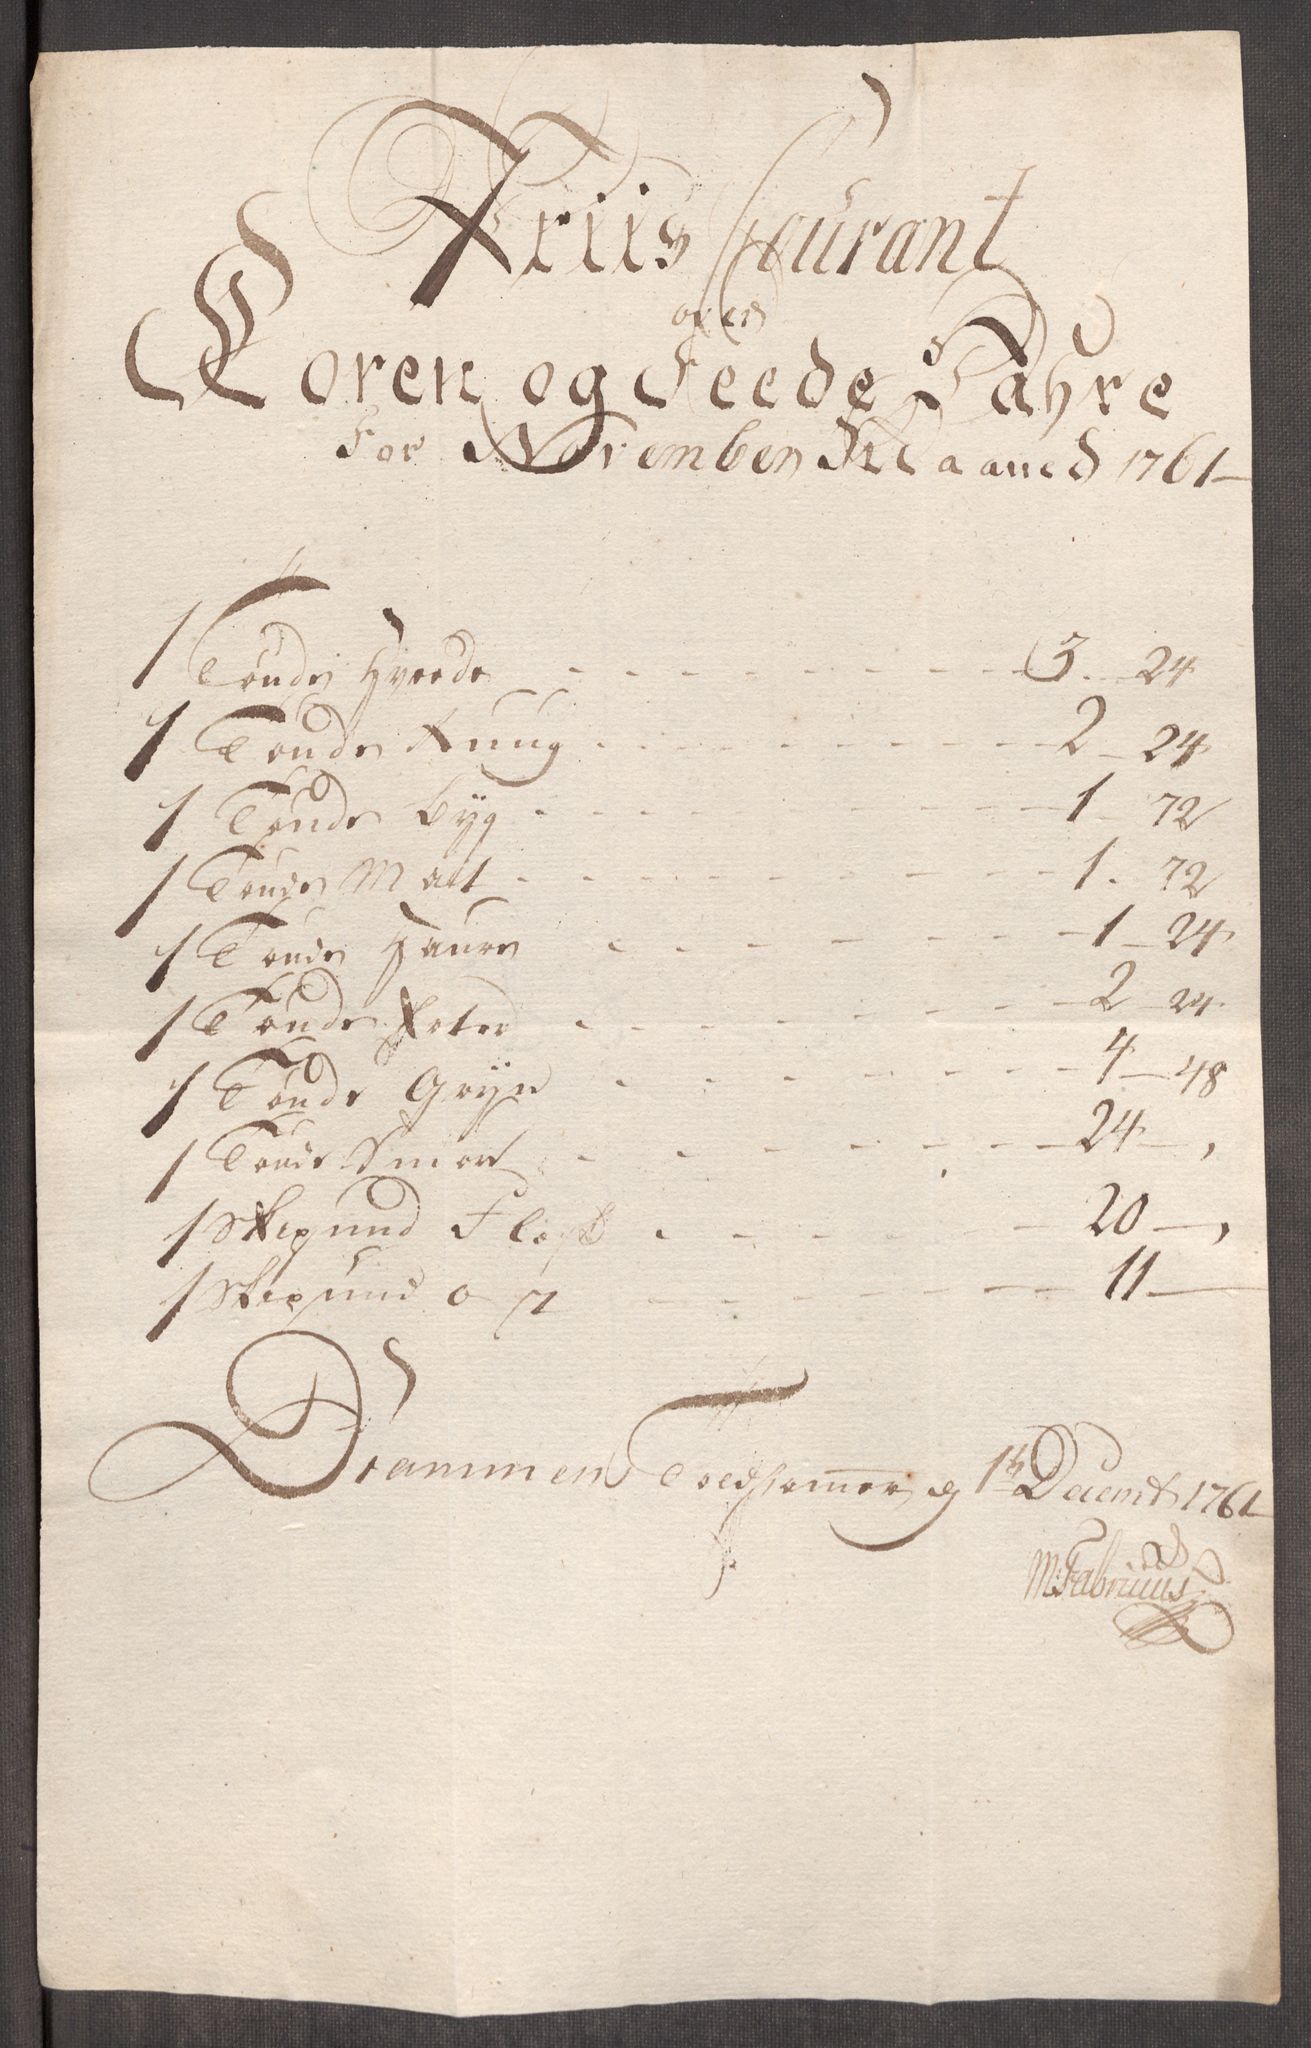 Priis Courant
over
Koren og Feede Vahre
For November Maaned 1761
1 Tønde Hveede - - - 3. 24
1 Tønde Ruug - - - 2 - 24
1 Tønde Byg - - - 1 - 72
1 Tønde Malt - - - 1. 72
1 Tønde Haure - - - 1 - 24
1 Tønde Erter - - - 2 - 24
1 Tønde Gryn - - - 4 - 48
1 Tønde Smør - - - 24 - ,
1 Skippund Flesk - - - 20 - ,
1 Skippund - - - 11 -
Drammens Toldkammer d 1te Decemb 1761
M: Fabricius